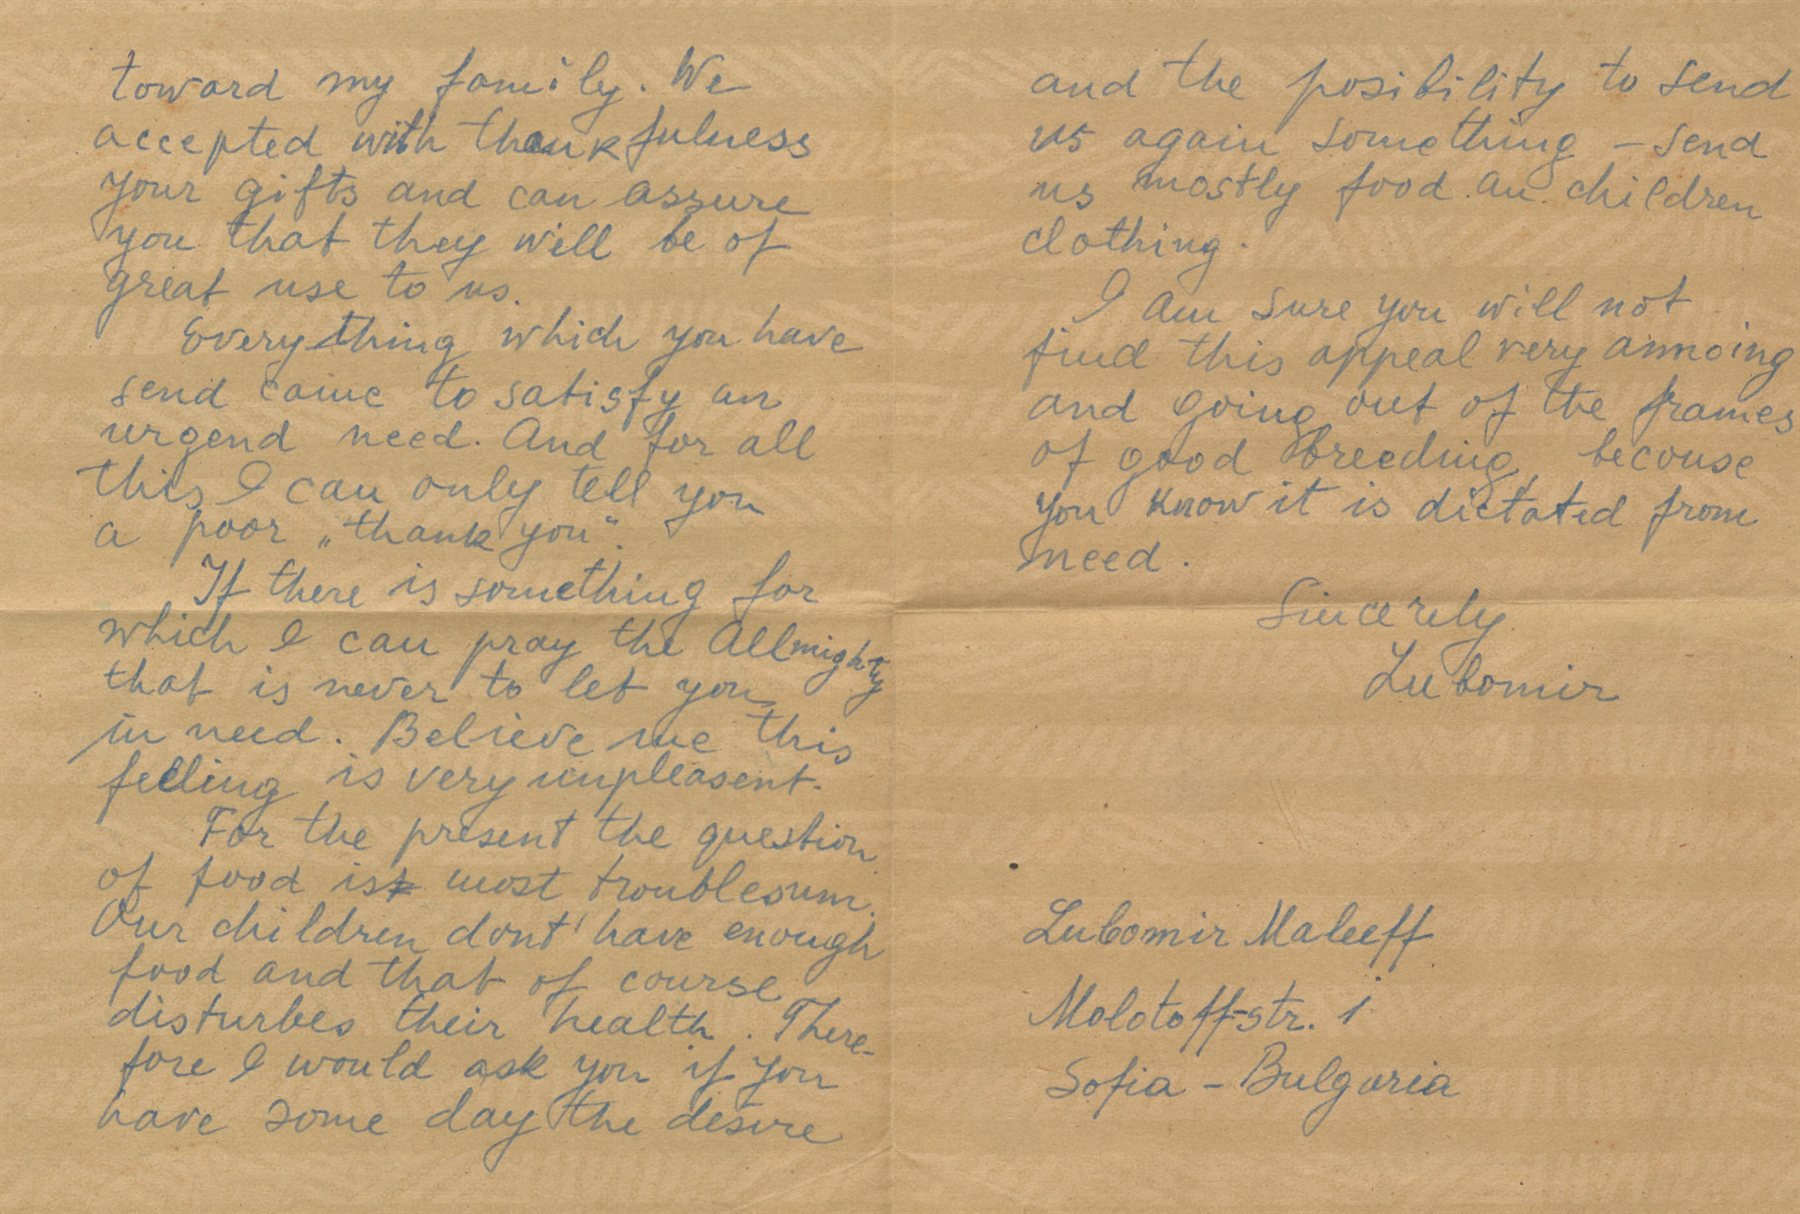 toward my family. We
accepted with thankfulness
your gifts and can assure
you that they will be of
great use to us.
Everything which you have
send came to satisfy an
urgend need. And for all
this I can only tell you
a poor „thank you“.
If there is something for
which I can pray the Allmighty
that is never to let you
in need. Believe me this
feeling is very unpleasent.
For the present the question
of food is most troublesum.
Our children dont' have enough
food and that of course
disturbes their health. There-
fore I would ask you if you
have some day the desire
and the posibility to send
us again something – send
us mostly food an children
clothing.
I am sure you will not
find this appeal very annoing
and going out of the frames
of good breeding, becouse
you know it is dictated from
need.
Sincerely
Lubomir
Lubomir Maleeff
Molotoff-str. 1
Sofia – Bulgaria